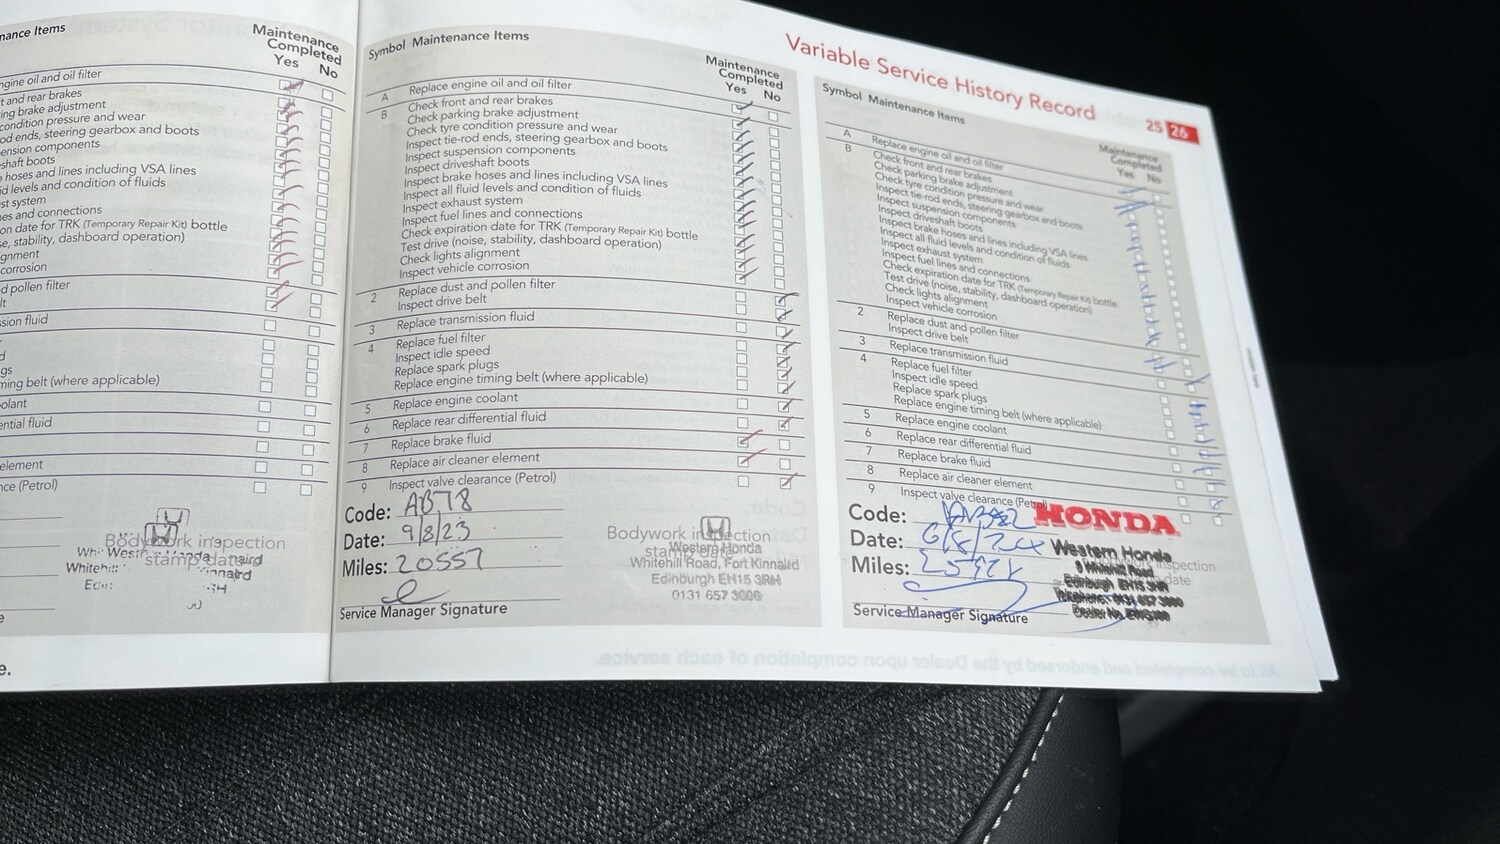 Variable Service History Record
25 26
nance Items
Maintenance
Completed
Yes No
ngine oil and oil filter
t and rear brakes
ing brake adjustment
condition pressure and wear
od ends, steering gearbox and boots
ension components
shaft boots
hoses and lines including VSA lines
id levels and condition of fluids
st system
nes and connections
on date for TRK (Temporary Repair Kit) bottle
se, stability, dashboard operation)
gnment
corrosion
d pollen filter
lt
sion fluid
d
gs
ming belt (where applicable)
olant
ential fluid
element
nce (Petrol)
Bodywork inspection
stamp date
e.
Symbol Maintenance Items
Maintenance
Completed
Yes No
A Replace engine oil and oil filter
B Check front and rear brakes
Check parking brake adjustment
Check tyre condition pressure and wear
Inspect tie-rod ends, steering gearbox and boots
Inspect suspension components
Inspect driveshaft boots
Inspect brake hoses and lines including VSA lines
Inspect all fluid levels and condition of fluids
Inspect exhaust system
Inspect fuel lines and connections
Check expiration date for TRK (Temporary Repair Kit) bottle
Test drive (noise, stability, dashboard operation)
Check lights alignment
Inspect vehicle corrosion
2 Replace dust and pollen filter
Inspect drive belt
3 Replace transmission fluid
4 Replace fuel filter
Inspect idle speed
Replace spark plugs
Replace engine timing belt (where applicable)
5 Replace engine coolant
6 Replace rear differential fluid
7 Replace brake fluid
8 Replace air cleaner element
9 Inspect valve clearance (Petrol)
Code: AB78
Date: 9/8/23
Miles: 20557
Service Manager Signature
Bodywork inspection
stamp date
Western Honda
Whitehill Road, Fort Kinnaird
Edinburgh EH15 3RH
0131 657 3000
Symbol Maintenance Items
Maintenance
Completed
Yes No
A Replace engine oil and oil filter
B Check front and rear brakes
Check parking brake adjustment
Check tyre condition pressure and wear
Inspect tie-rod ends, steering gearbox and boots
Inspect suspension components
Inspect driveshaft boots
Inspect brake hoses and lines including VSA lines
Inspect all fluid levels and condition of fluids
Inspect exhaust system
Inspect fuel lines and connections
Check expiration date for TRK (Temporary Repair Kit) bottle
Test drive (noise, stability, dashboard operation)
Check lights alignment
Inspect vehicle corrosion
2 Replace dust and pollen filter
Inspect drive belt
3 Replace transmission fluid
4 Replace fuel filter
Inspect idle speed
Replace spark plugs
Replace engine timing belt (where applicable)
5 Replace engine coolant
6 Replace rear differential fluid
7 Replace brake fluid
8 Replace air cleaner element
9 Inspect valve clearance (Petrol)
Code:
Date:
Miles:
Service Manager Signature
HONDA
Western Honda
Edinburgh
0131 657 3000
Dealer No.